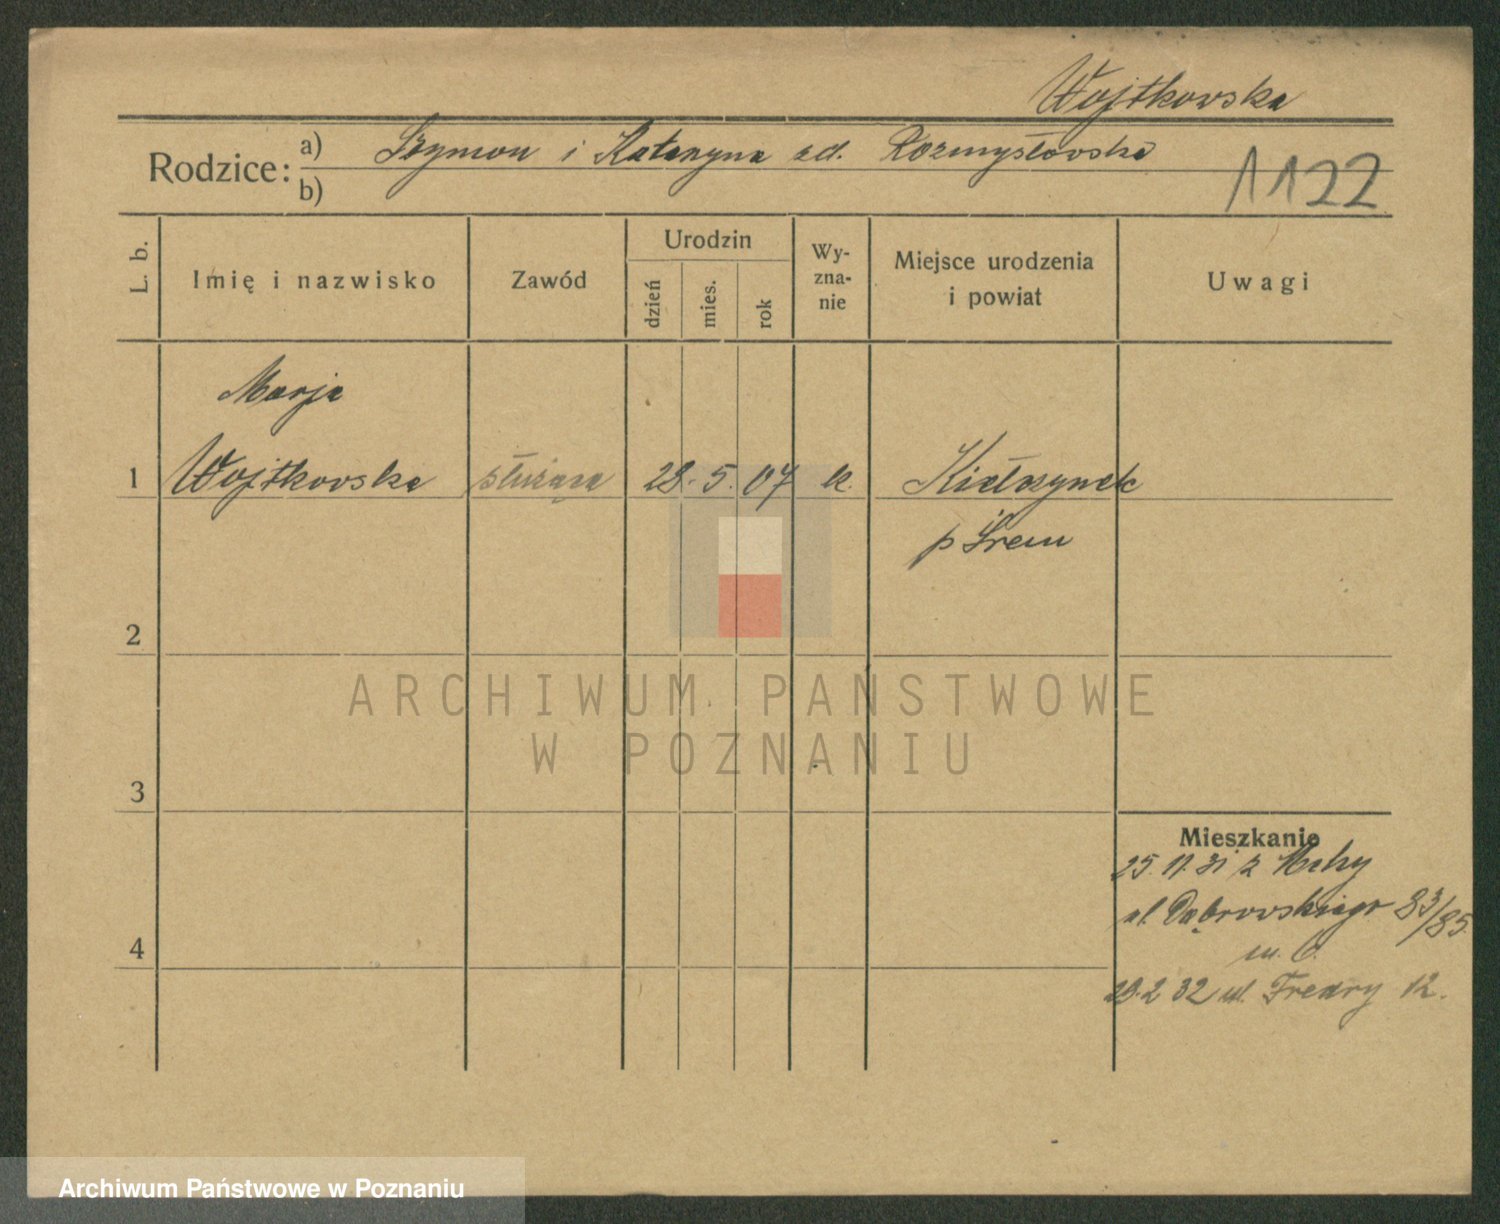 Wojtkowska
Rodzice: a) Szymon i Katarzyna zd. Rozmysłowska
b)
1122
L. b.
Imię i nazwisko
Zawód
Urodzin
dzień
mies.
rok
Wy-
zna-
nie
Miejsce urodzenia
i powiat
Uwagi
Marja
1 Wojtkowska służąca 28. 5. 07 k. Kiełczynek
p Śrem
2
ARCHIWUM PAŃSTWOWE
W POZNANIU
3
Mieszkanie
25. 11. 31 z Mchy
ul. Dąbrowskiego 83/85
m. 6.
4
2 32 ul. Fredry 12.
Archiwum Państwowe w Poznaniu